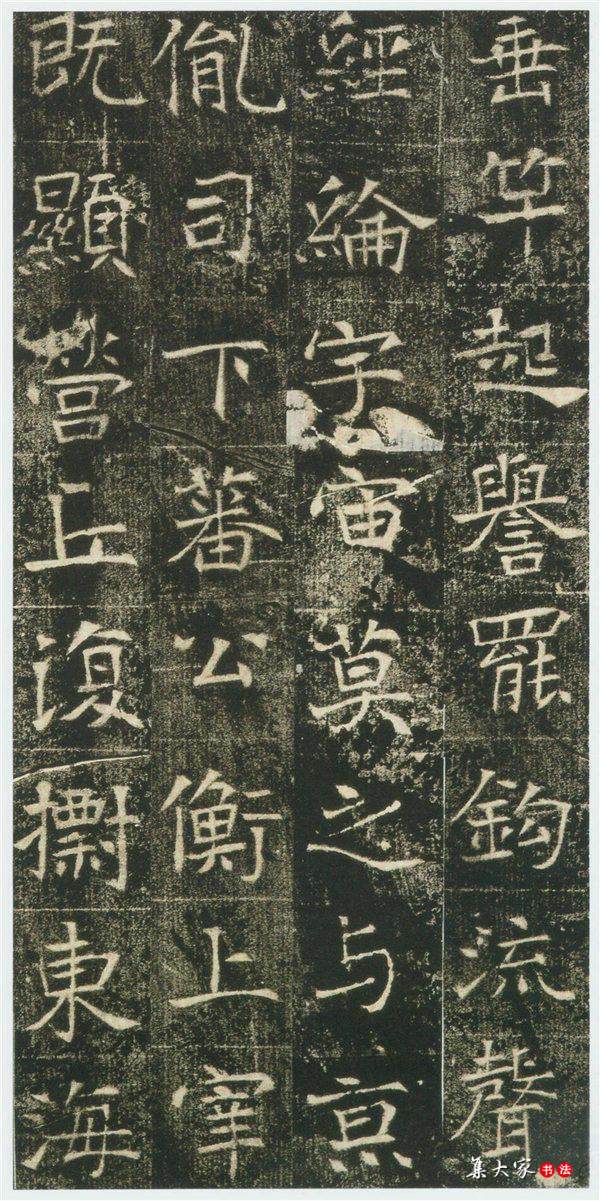 垂竿起譽罷鈎流聲
經綸宇宙莫之与亰
胤司下蕃公衡上宰
既顯營丘復東海
集大家书法